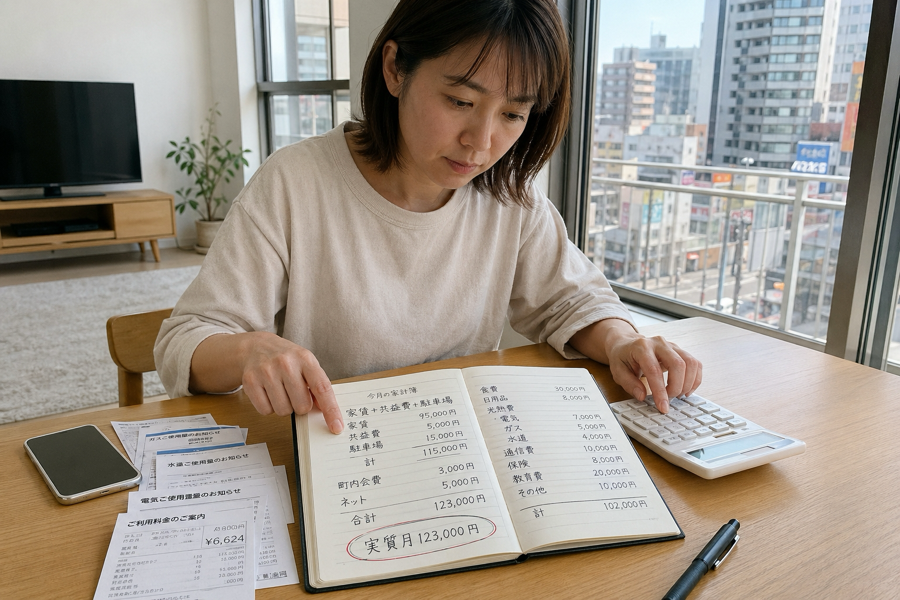 今月の家計簿
家賃+共益費+駐車場
家賃 95,000円
共益費 5,000円
駐車場 15,000円
計 115,000円
町内会費 3,000円
ネット 5,000円
合計 123,000円
実質月123,000円
食費 30,000円
日用品 8,000円
光熱費
電気 7,000円
ガス 5,000円
水道 4,000円
通信費 10,000円
保険 8,000円
教育費 20,000円
その他 10,000円
計 102,000円
ガスご使用量のお知らせ
水道ご使用量のお知らせ
電気ご使用量のお知らせ
ご利用料金のご案内
¥6,624